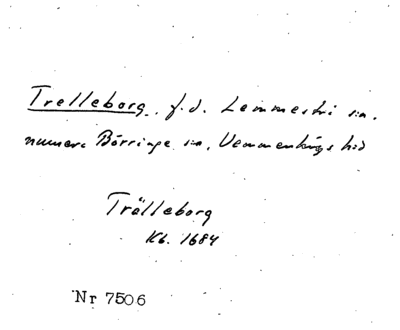 Trelleborg f.d. Lemmeströ sn.
numera Börringe sn, Vemmenhögs hd
Trälleborg
Kb. 1684
Nr 7506